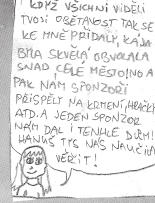 KDYŽ VŠICHNI VIDĚLI
TVOJI OBĚTAVOST TAK SE
KE MNĚ PŘIDALI, KÁJA
BYLA SKVĚLÁ OBVOLALA
SNAD CELÉ MĚSTO, NO A
PAK NÁM SPONZOŘI
PŘISPĚLY NA KRMENÍ, HRAČKY
ATD. A JEDEN SPONZOR
NÁM DAL I TENHLE DŮM!
TYS NÁS NAUČIL
VĚŘIT!